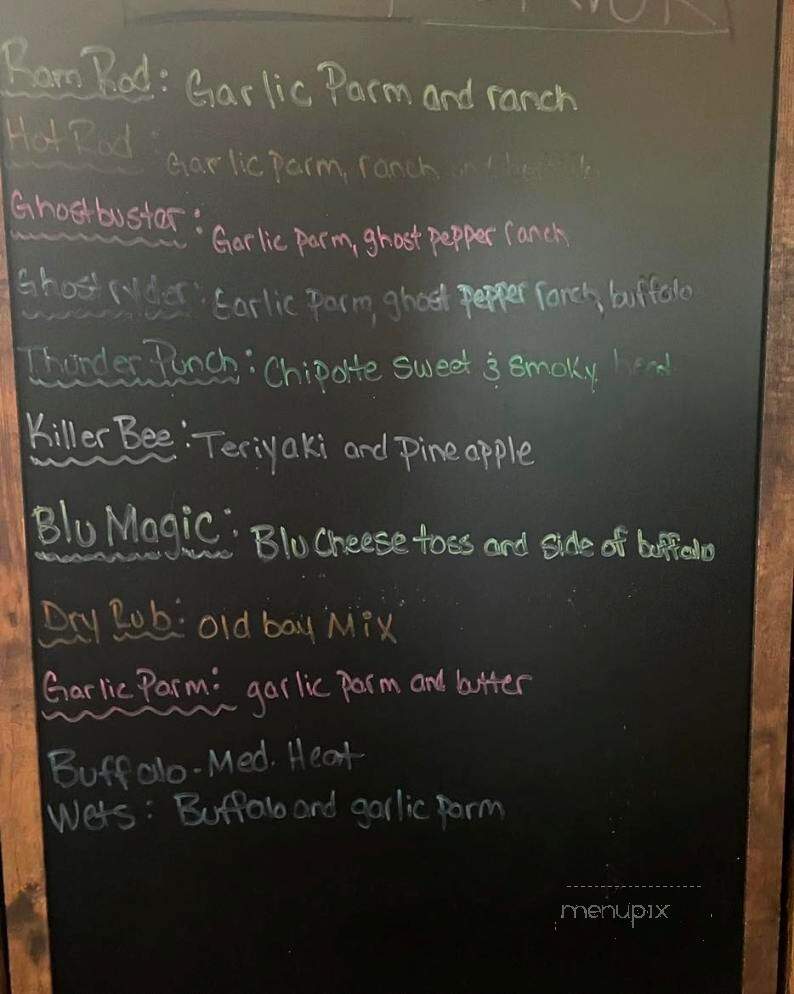 Ram Rod: Garlic Parm and ranch
Hot Rod: Garlic parm, ranch
Ghostbuster: Garlic parm, ghost pepper ranch
Ghost ryder: Garlic Parm, ghost pepper ranch, buffalo
Thunder Punch: Chipotte sweet & smoky
Killer Bee: Teriyaki and pineapple
Blu Magic: Blu Cheese toss and side of buffalo
Dry Rub: old bay Mix
Garlic Parm: garlic parm and butter
Buffalo - Med. Heat
Wets: Buffalo and garlic parm
menupix